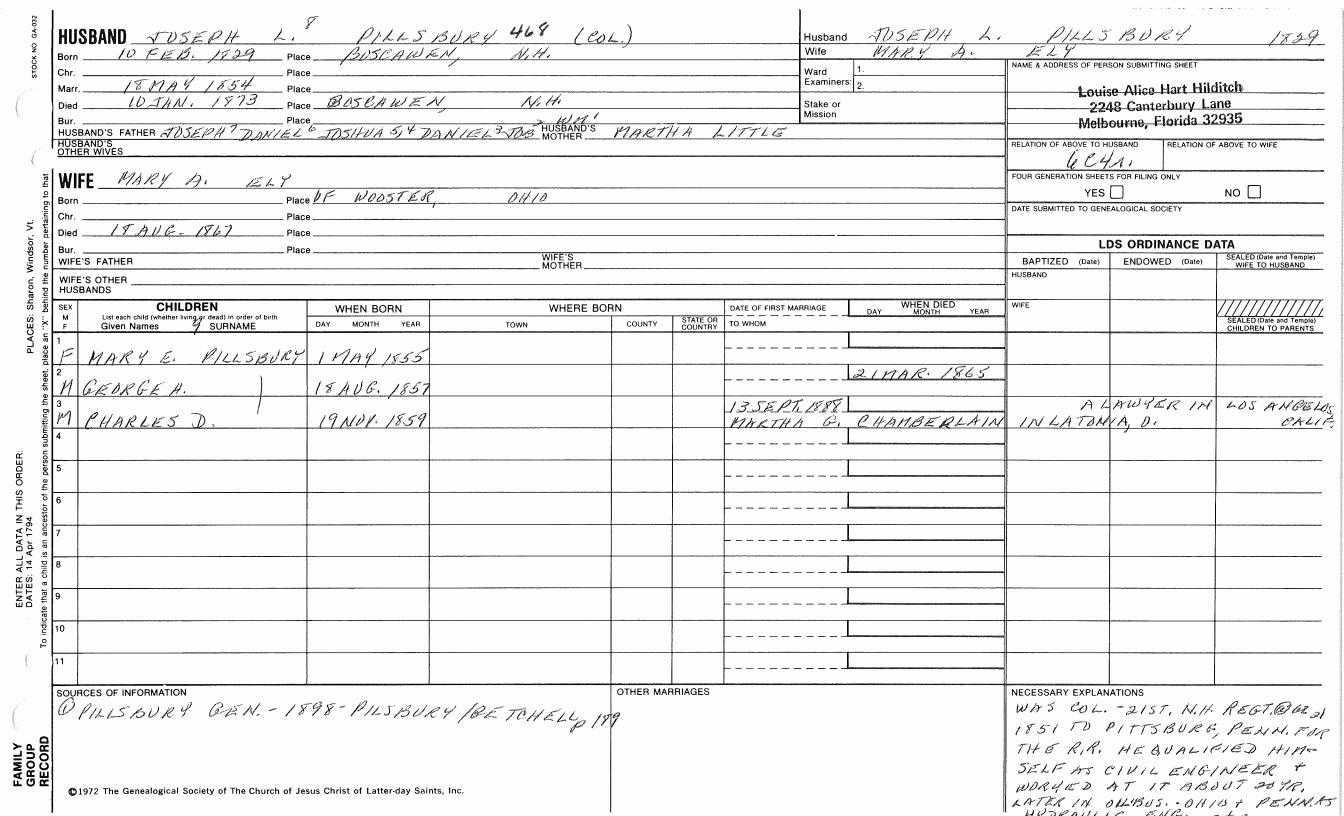 STOCK NO GA-032
HUSBAND JOSEPH L. 8 PILLSBURY 468 (COL.)
Born 10 FEB. 1829 Place BOSCAWEN, N.H.
Chr. Place
Marr. 18 MAY 1854 Place
Died 10 JAN. 1873 Place BOSCAWEN, N.H.
Bur. Place
HUSBAND'S FATHER JOSEPH 7 DANIEL 6 JOSHUA 5,4 DANIEL 3 JOB 2 WM 1 HUSBAND'S MOTHER MARTHA LITTLE
HUSBAND'S OTHER WIVES
Husband JOSEPH L. PILLSBURY 1829
Wife MARY A. ELY
Ward Examiners: 1.
2.
Stake or Mission
NAME & ADDRESS OF PERSON SUBMITTING SHEET
Louise Alice Hart Hilditch
2248 Canterbury Lane
Melbourne, Florida 32935
RELATION OF ABOVE TO HUSBAND RELATION OF ABOVE TO WIFE
6C4R.
FOUR GENERATION SHEETS FOR FILING ONLY
YES NO
DATE SUBMITTED TO GENEALOGICAL SOCIETY
WIFE MARY A. ELY
Born Place OF WOOSTER, OHIO
Chr. Place
Died 18 AUG- 1867 Place
Bur. Place
WIFE'S FATHER WIFE'S MOTHER
WIFE'S OTHER HUSBANDS
LDS ORDINANCE DATA
BAPTIZED (Date) ENDOWED (Date) SEALED (Date and Temple) WIFE TO HUSBAND
HUSBAND
WIFE
SEALED (Date and Temple) CHILDREN TO PARENTS
SEX M F CHILDREN WHEN BORN WHERE BORN DATE OF FIRST MARRIAGE WHEN DIED
List each child (whether living or dead) in order of birth
Given Names SURNAME DAY MONTH YEAR TOWN COUNTY STATE OR COUNTRY TO WHOM DAY MONTH YEAR
1 F MARY E. PILLSBURY 1 MAY 1855
2 M GEORGE H. 18 AUG. 1857 21 MAR. 1865
3 M CHARLES D. 19 NOV. 1859 13 SEPT. 1888 MARTHA G. CHAMBERLAIN IN LATONIA, O.
A LAWYER IN LOS ANGELOS CALIF.
4
5
6
7
8
9
10
11
SOURCES OF INFORMATION
① PILLSBURY GEN.- 1898- PILSBURY/BETCHELL p 189
OTHER MARRIAGES
NECESSARY EXPLANATIONS
WAS COL. - 21ST. N.H. REGT.
1851 TO PITTSBURG, PENN. FOR
THE R.R. HE QUALIFIED HIM-
SELF AS CIVIL ENGINEER +
WORKED AT IT ABOUT 20 YR.
LATER IN OHIO + PENN. AS
HYDRAULIC ENG.
©1972 The Genealogical Society of The Church of Jesus Christ of Latter-day Saints, Inc.
PLACES: Sharon, Windsor, Vt.
ENTER ALL DATA IN THIS ORDER:
DATES: 14 Apr 1794
To indicate that a child is an ancestor of the person submitting the sheet, place an "X" behind the number pertaining to that
FAMILY GROUP RECORD